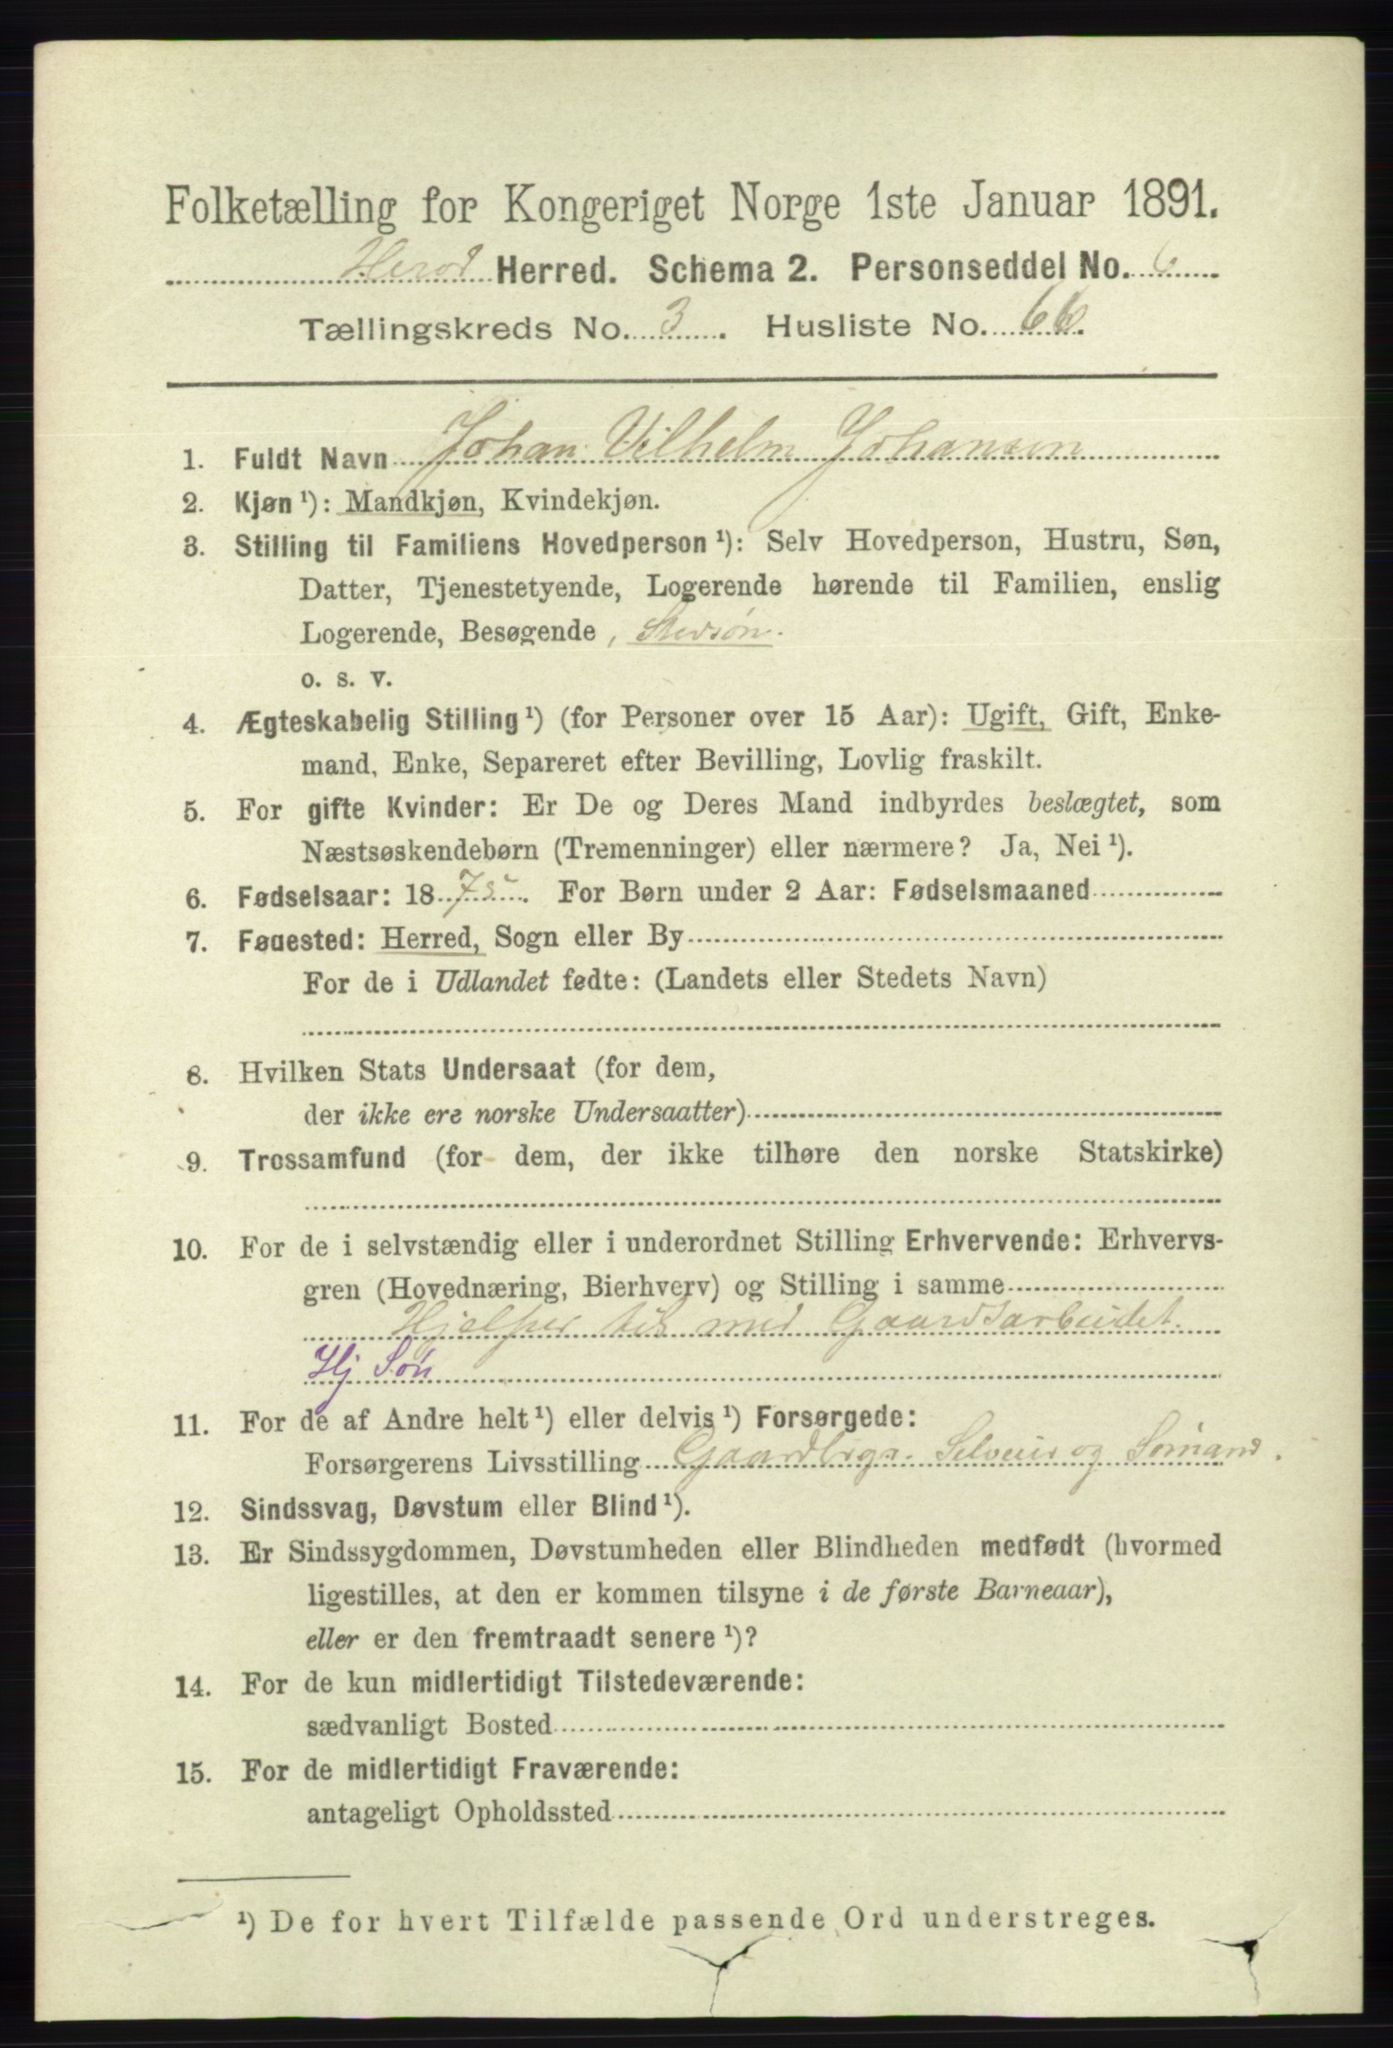 Folketælling for Kongeriget Norge 1ste Januar 1891.
Herred. Schema 2. Personseddel No. 6
Tællingskreds No. 3. Husliste No. 66.
1. Fuldt Navn Johan Vilhelm Johansen
2. Kjøn ¹): Mandkjøn, Kvindekjøn.
3. Stilling til Familiens Hovedperson ¹): Selv Hovedperson, Hustru, Søn,
Datter, Tjenestetyende, Logerende hørende til Familien, enslig
Logerende, Besøgende, Stedsøn.
o. s. v.
4. Ægteskabelig Stilling ¹) (for Personer over 15 Aar): Ugift, Gift, Enke-
mand, Enke, Separeret efter Bevilling, Lovlig fraskilt.
5. For gifte Kvinder: Er De og Deres Mand indbyrdes beslægtet, som
Næstsøskendebørn (Tremenninger) eller nærmere? Ja, Nei ¹).
6. Fødselsaar: 1875. For Børn under 2 Aar: Fødselsmaaned
7. Fødested: Herred, Sogn eller By
For de i Udlandet fødte: (Landets eller Stedets Navn)
8. Hvilken Stats Undersaat (for dem,
der ikke ere norske Undersaatter)
9. Trossamfund (for dem, der ikke tilhøre den norske Statskirke)
10. For de i selvstændig eller i underordnet Stilling Erhvervende: Erhvervs-
gren (Hovednæring, Bierhverv) og Stilling i samme
Hjelper til med Gaardsarbeidet.
Hj Søn
11. For de af Andre helt ¹) eller delvis ¹) Forsørgede:
Forsørgerens Livsstilling Gaardbrgr. Selveier og Sømand.
12. Sindssvag, Døvstum eller Blind ¹).
13. Er Sindssygdommen, Døvstumheden eller Blindheden medfødt (hvormed
ligestilles, at den er kommen tilsyne i de første Barneaar),
eller er den fremtraadt senere ¹)?
14. For de kun midlertidigt Tilstedeværende:
sædvanligt Bosted
15. For de midlertidigt Fraværende:
antageligt Opholdssted
¹) De for hvert Tilfælde passende Ord understreges.